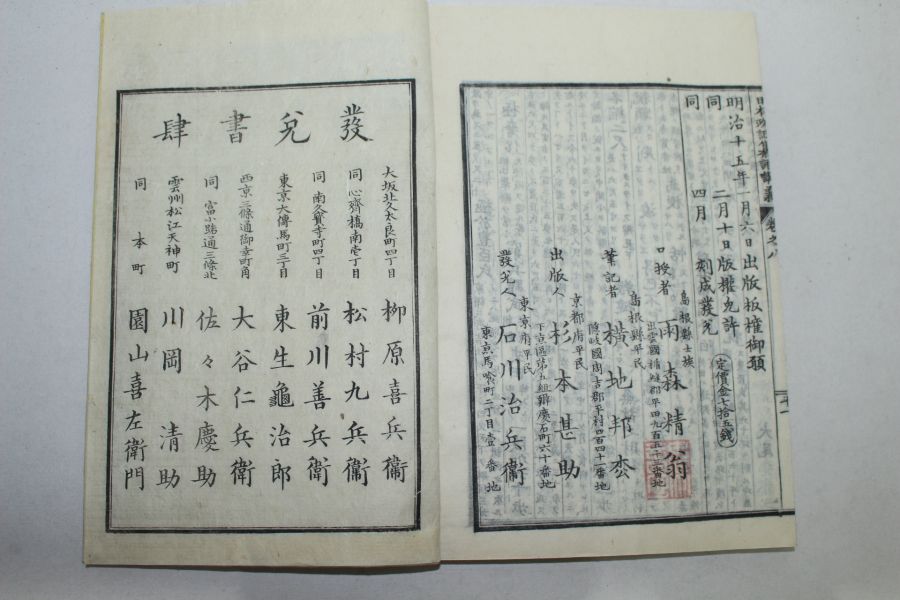 明治十五年一月六日出版板權御願
同 二月十日版權免許
同 四月 刻成發兌
定價金七拾五錢
島根縣士族
口授者 雨森精翁
島根縣平民
筆記者 橫地邦
隱岐國周吉郡平村四百四十番地
京都府平民
出版人 杉本甚助
下京區第五組辨慶石町六十番地
東京府平民
發兌人 石川治兵衞
東京馬喰町二丁目壹番地
發兌書肆
大坂北久太良町四丁目 柳原喜兵衞
同 心齋橋南壱丁目 松村九兵衞
同 南久寶寺町四丁目 前川善兵衞
東京大傳馬町三丁目 東生龜治郎
西京三條通御幸町角 大谷仁兵衞
同 富小路通三條北 佐々木慶助
雲州松江天神町 川岡清助
同 本町 園山喜左衛門